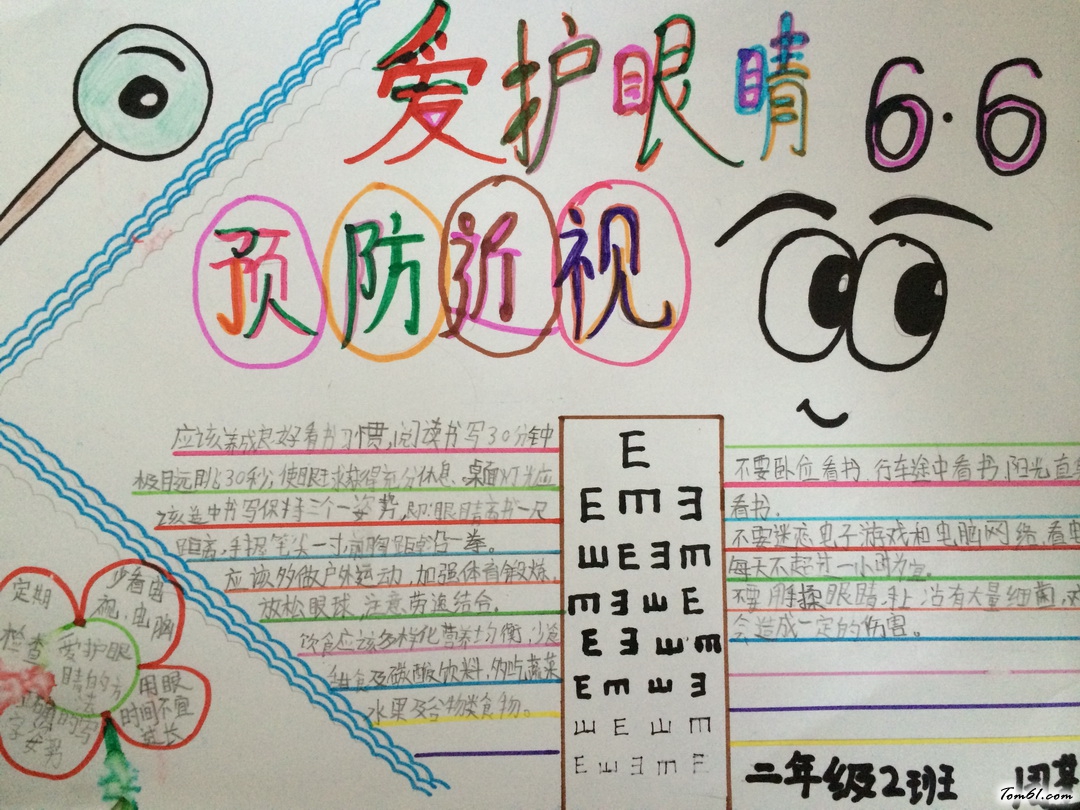 爱护眼睛 6·6
预防近视
应该养成良好看书习惯,阅读书写30分钟
极目远眺30秒,使眼球获得充分休息、桌面灯光应
该适中书写保持三个一姿势,即:眼睛离书一尺
距离,手握笔尖一寸,前胸距离一拳。
应该多做户外运动,加强体育锻炼,
放松眼球,注意劳逸结合。
饮食应该多样化营养均衡,少食
甜食及碳酸饮料,多吃蔬菜
水果及谷物类食物。
E
E E E
E E E E
E E E E
E E E E
E E E E
E E E E
E E E E E
不要卧位看书.行车途中看书.阳光直
看书.
不要迷恋电子游戏和电脑网络,看电
每天不超过一小时为宜。
不要用手揉眼睛,手上沾有大量细菌,对
会造成一定的伤害。
定期
检查
少看电
视,电脑
爱护眼
睛的方
法
用眼
时间不宜
过长
正确
的写
字姿势
二年级2班
Tom61.com